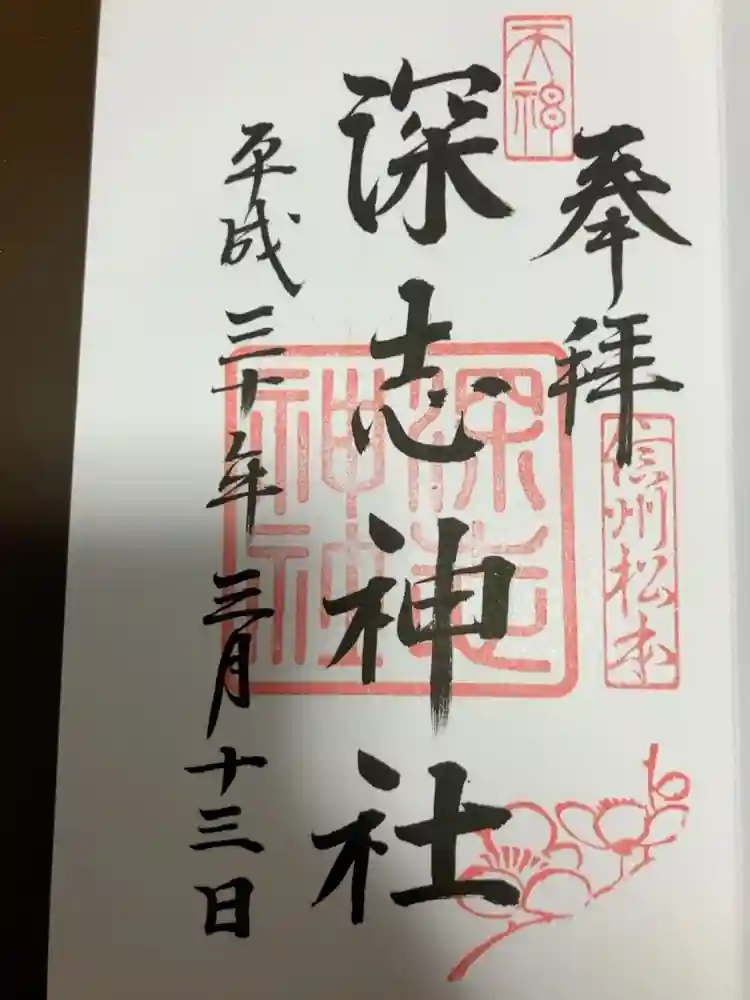 天神
奉拝
信州松本
深志神社
深志神社
平成三十年三月十三日